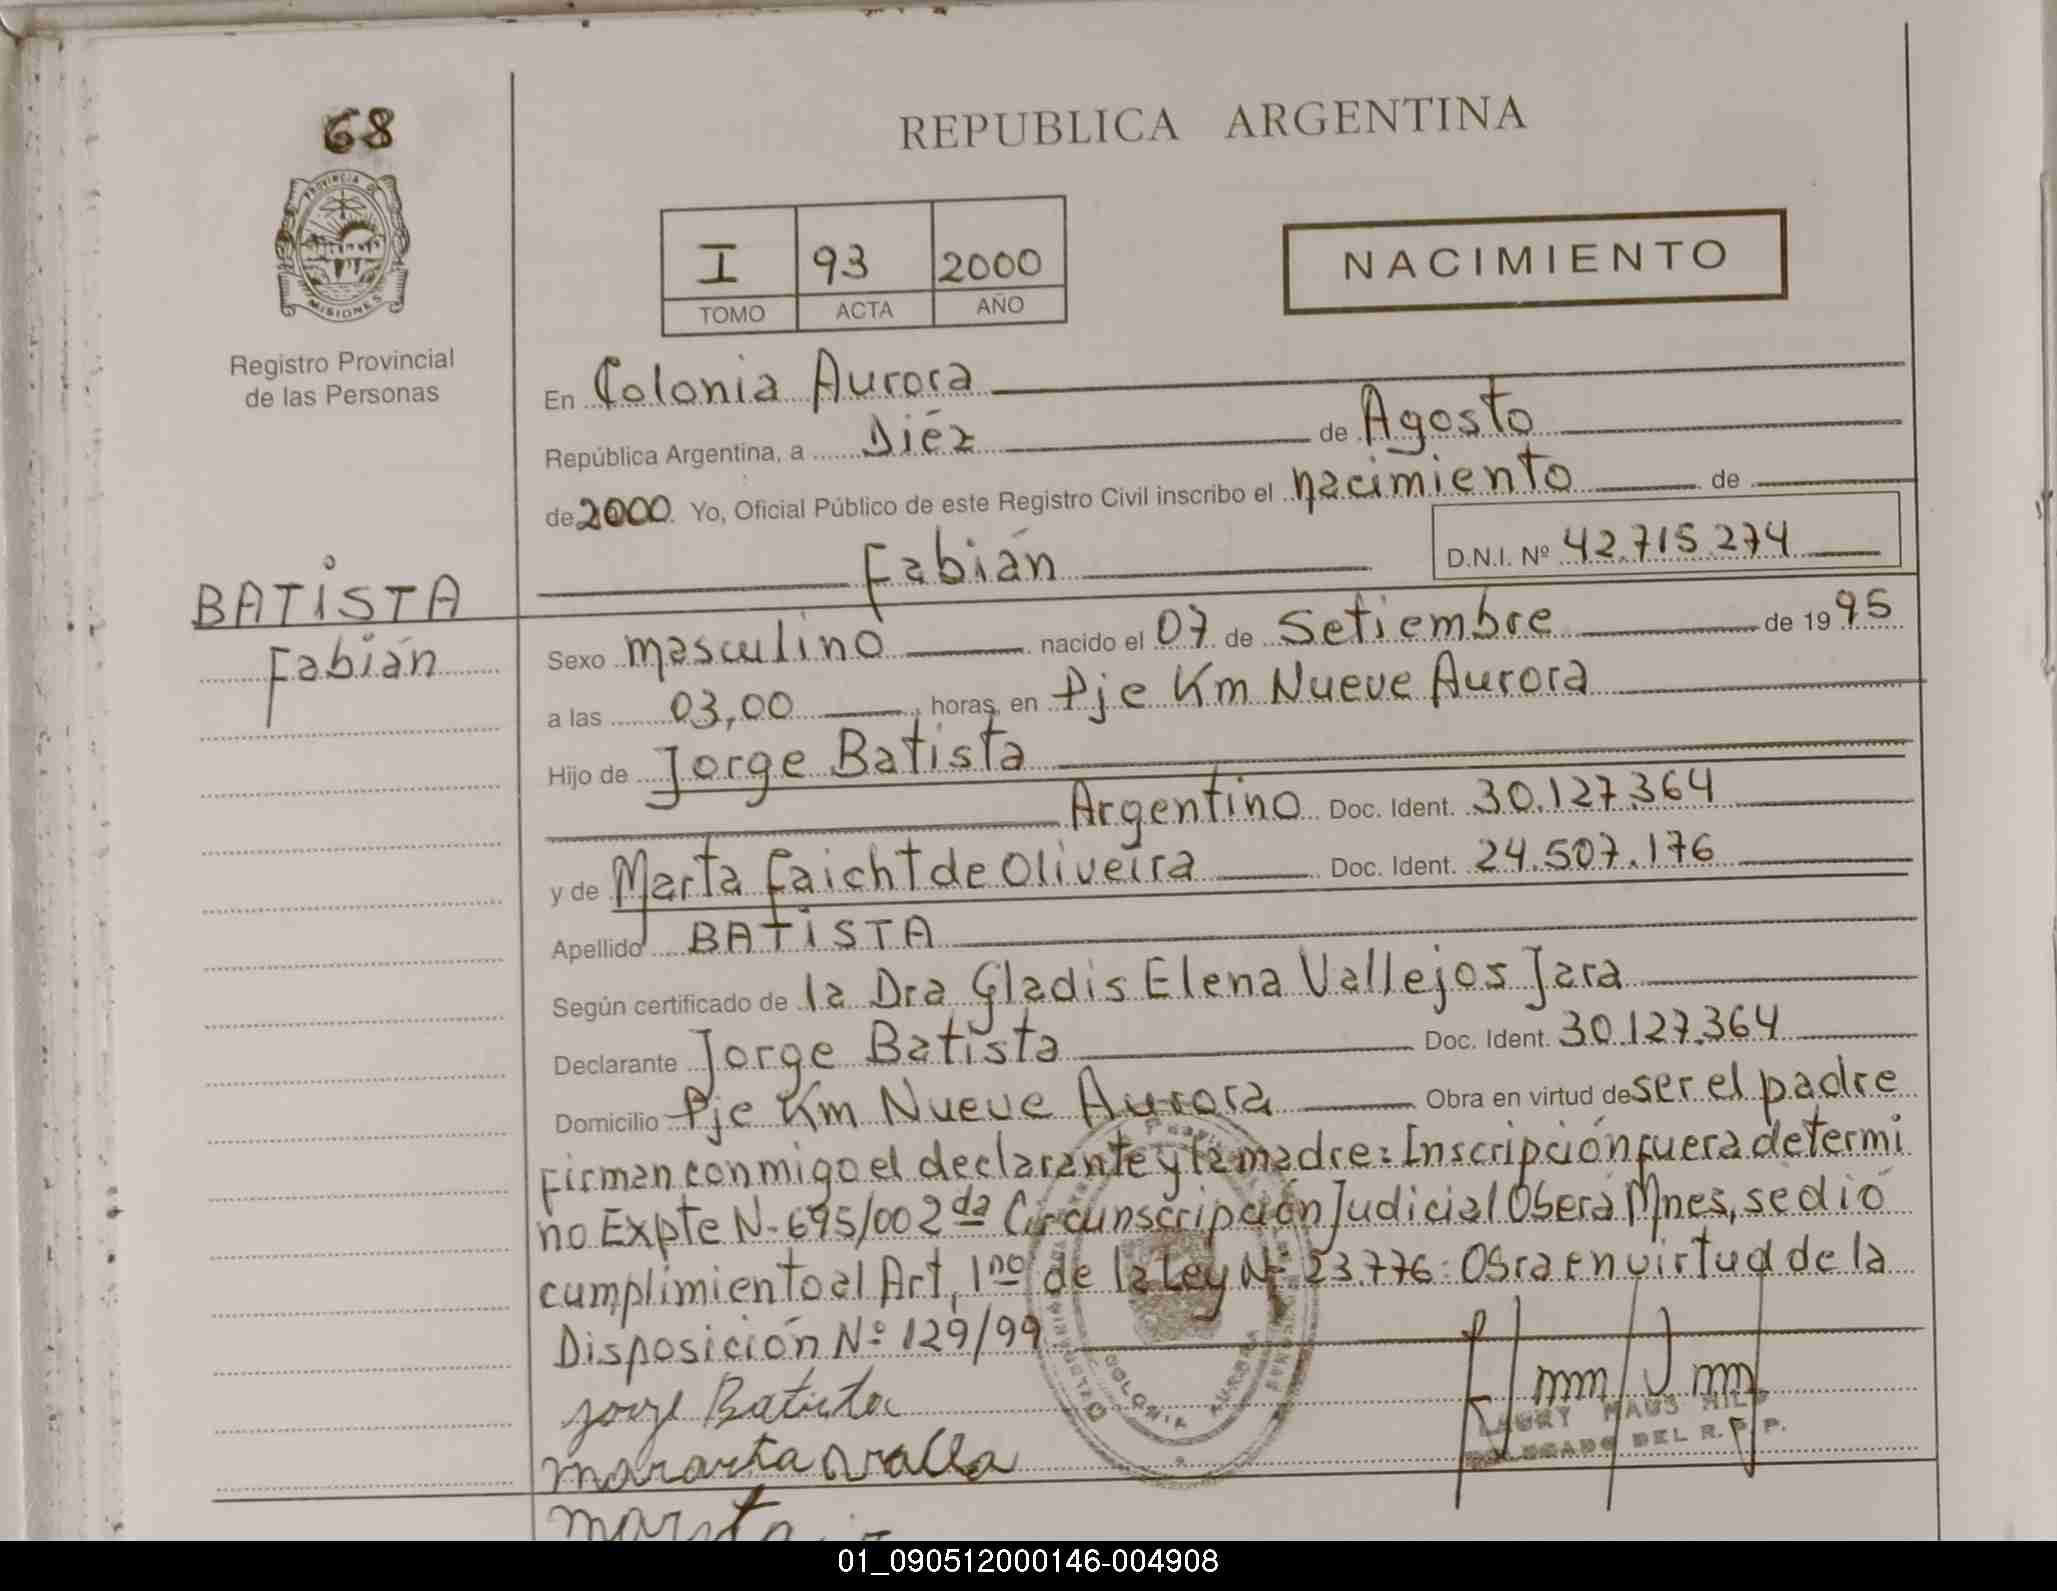 68
REPUBLICA ARGENTINA
PROVINCIA DE
MISIONES
I 93 2000
TOMO ACTA AÑO
NACIMIENTO
Registro Provincial
de las Personas
En Colonia Aurora
República Argentina, a Diéz de Agosto
de 2000 Yo, Oficial Público de este Registro Civil inscribo el nacimiento de
Fabián D.N.I. Nº 42.715.274
BATISTA
Fabián
Sexo masculino nacido el 07 de Setiembre de 1995
a las 03,00 horas, en Pje Km Nueve Aurora
Hijo de Jorge Batista
Argentino Doc. Ident. 30.127.364
y de Marta Faicht de Oliveira Doc. Ident. 24.507.176
Apellido BATISTA
Según certificado de la Dra Gladis Elena Vallejos Jara
Declarante Jorge Batista Doc. Ident. 30.127.364
Domicilio Pje Km Nueve Aurora Obra en virtud de ser el padre
Firman conmigo el declarante y la madre: Inscripción fuera de termi
no Expte N- 695/00 2da Circunscripción Judicial Oberá Mnes, se dió
cumplimiento al Art, 1no de la Ley Nº 23.776: Obra en virtud de la
Disposición Nº 129/99
Jorge Batista
COLONIA AURORA
DELEGADO DEL R. P. P.
01_090512000146-004908